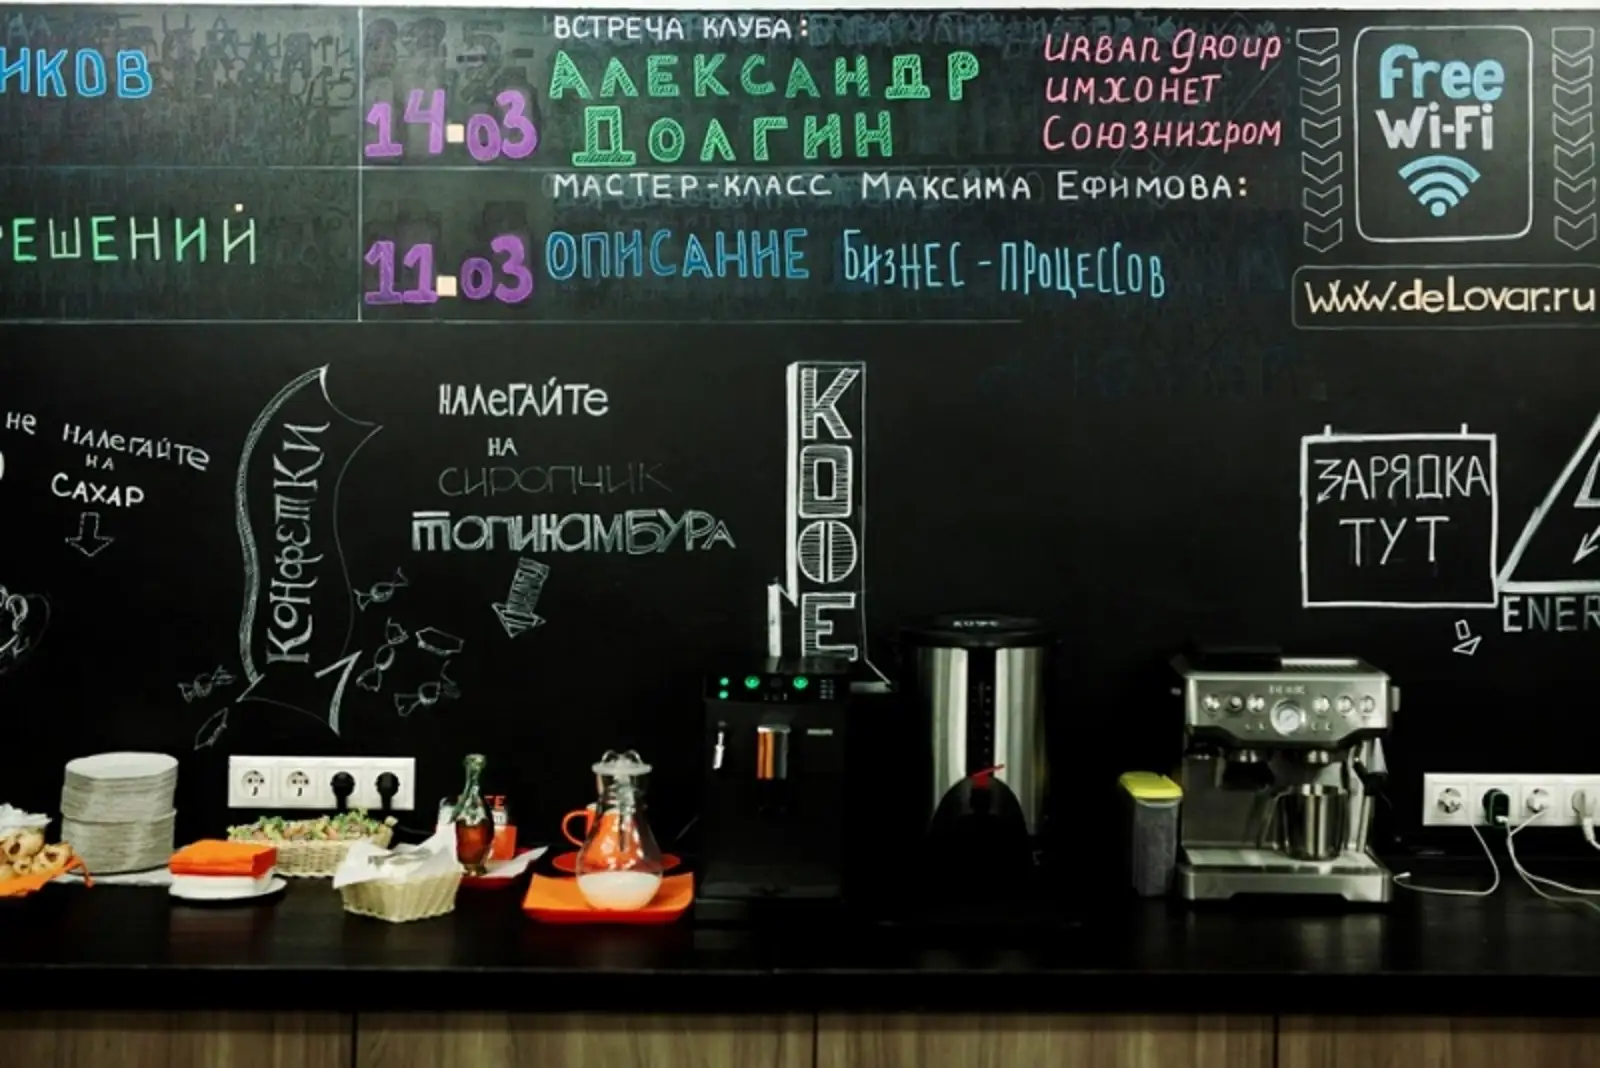 ИКОВ
РЕШЕНИЙ
14.03
ВСТРЕЧА КЛУБА:
АЛЕКСАНДР
ДОЛГИН
URBAN GROUP
ИМХОНЕТ
СОЮЗНИХРОМ
11.03
МАСТЕР-КЛАСС МАКСИМА ЕФИМОВА:
ОПИСАНИЕ БИЗНЕС-ПРОЦЕССОВ
Free
Wi-Fi
www.deLovar.ru
не НАЛЕГАЙТЕ
НА
САХАР
КОНФЕТКИ
НАЛЕГАЙТЕ
НА
СИРОПЧИК
ТОПИНАМБУРА
КОФЕ
ЗАРЯДКА
ТУТ
ENER
КОФЕ
PHILIPS
BORK